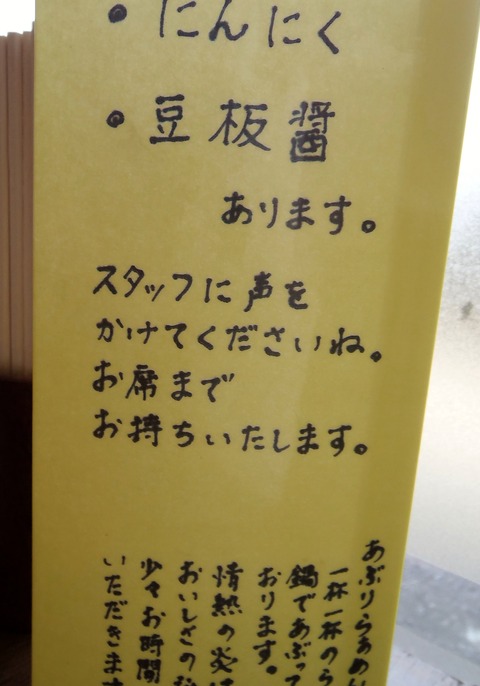 ・にんにく
・豆板醤
あります。
スタッフに声を
かけてくださいね。
お席まで
お持ちいたします。
あぶりらぁめん
一杯一杯のら
鍋であぶって
おります。
情熱の炎
おいしさの
少々お時間
いただきます